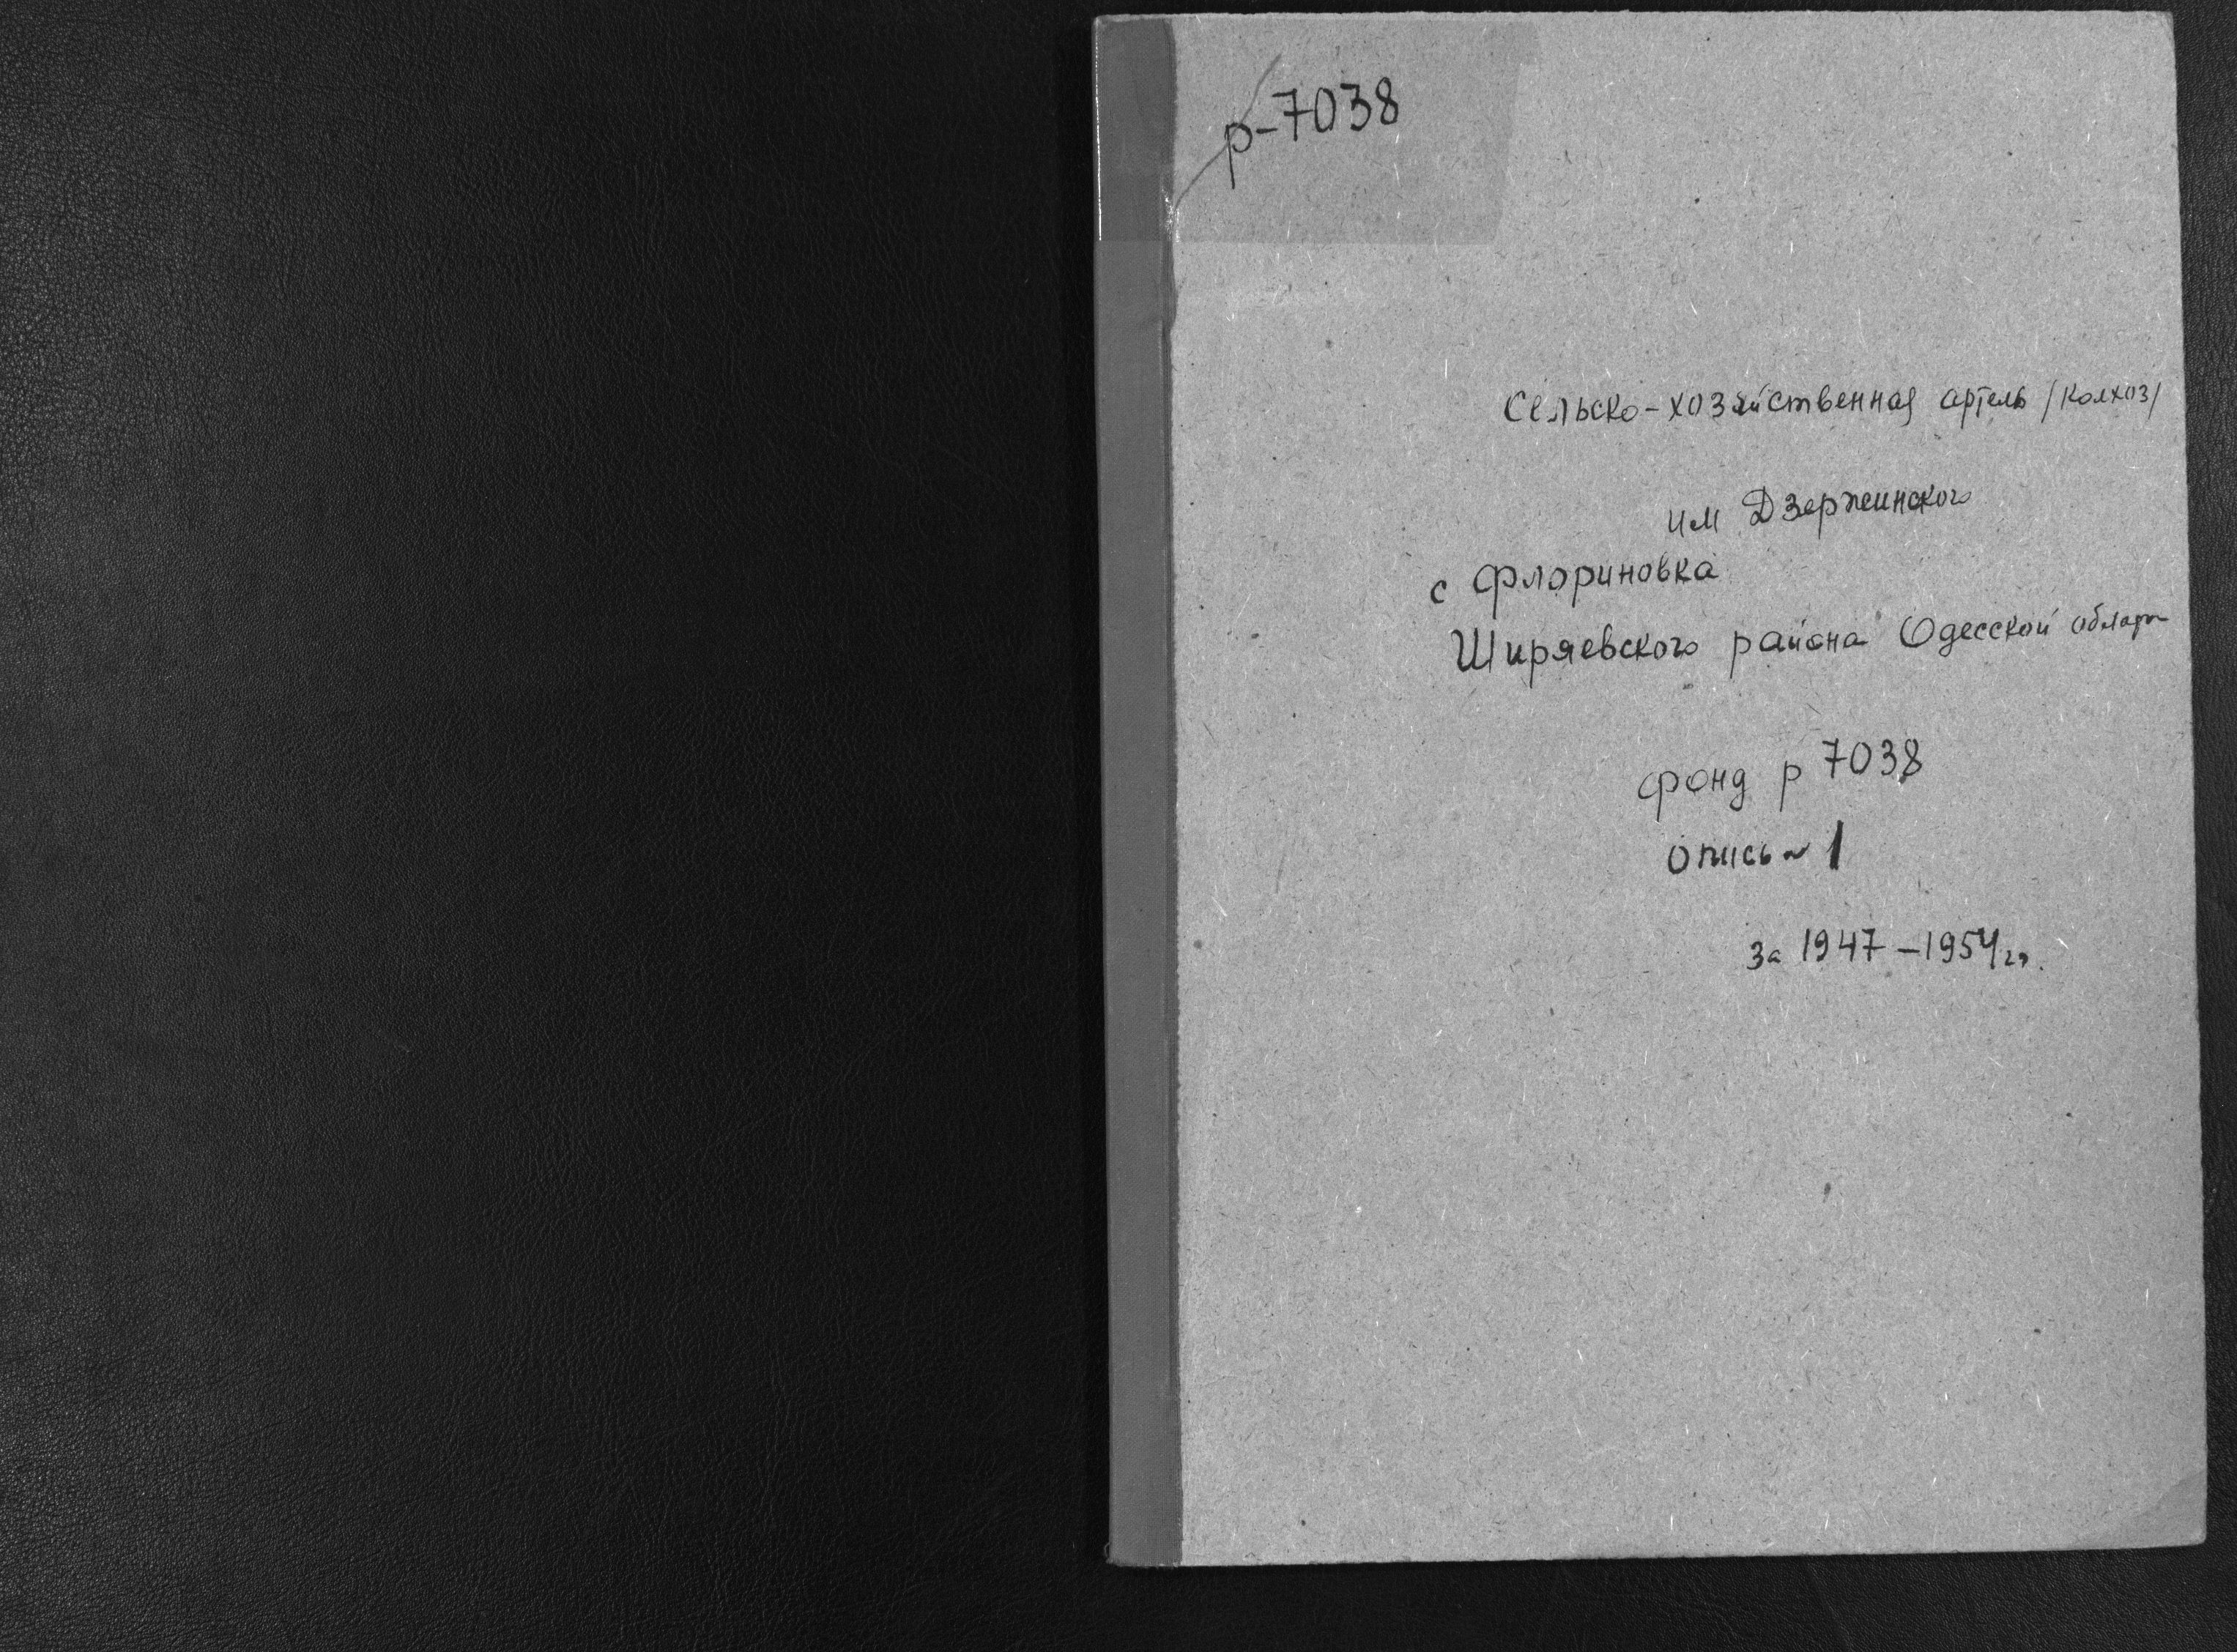 р-7038
Сельско-хозяйственная артель /колхоз/
им Дзержинского
с Флориновка
Ширяевского района Одесской
фонд р 7038
опись № 1
за 1947-1954 гг.